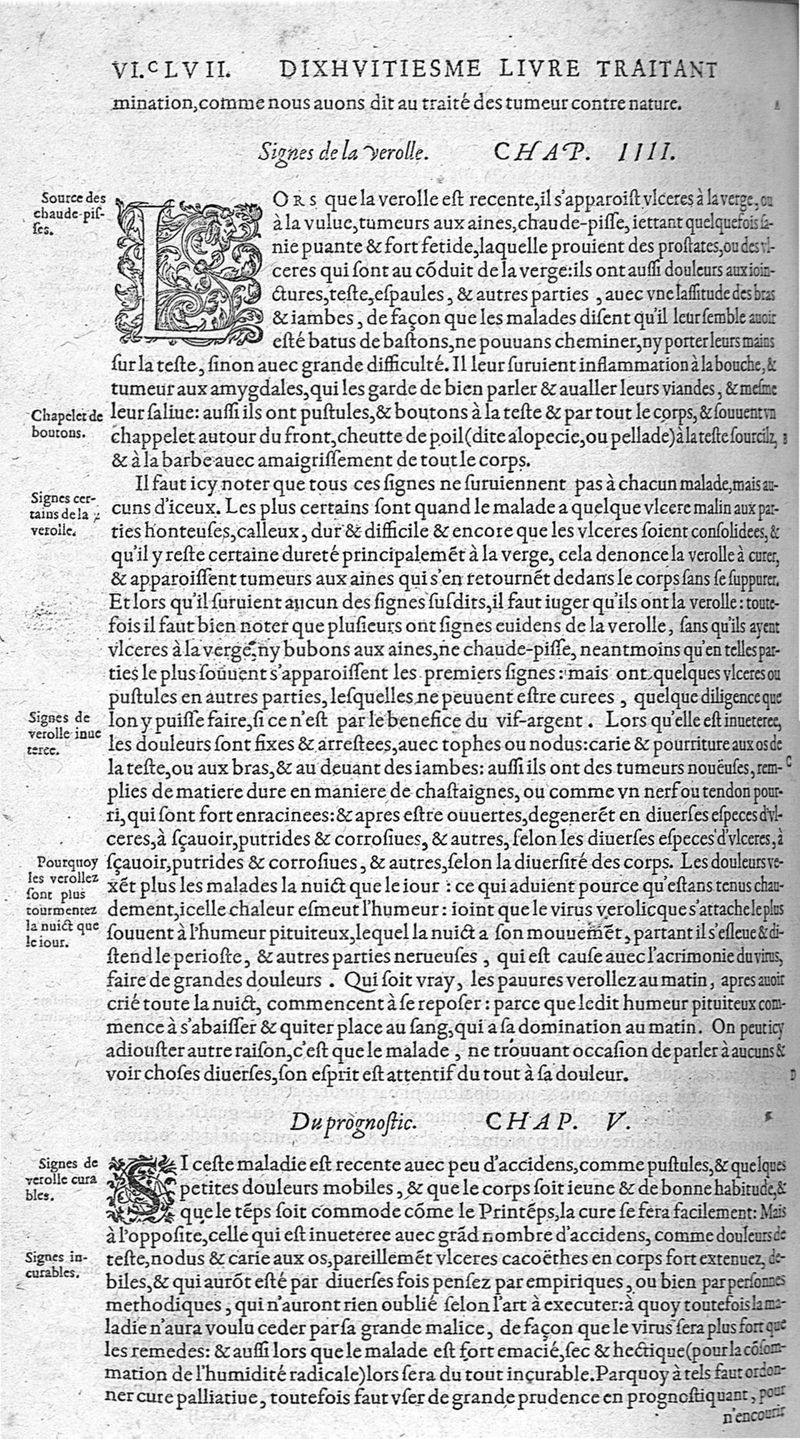 VI.ᶜLVII. DIXHVITIESME LIVRE TRAITANT
mination,comme nous auons dit au traité des tumeur contre nature.
Signes de la verolle. CHAP. IIII.
Source des
chaude-piſ-
ſes.
LORS que la verolle eſt recente,il s'apparoiſt vlceres à la verge,ou
à la vulue,tumeurs aux aines,chaude-piſſe,iettant quelquefois ſa-
nie puante & fort fetide,laquelle prouient des proſtates,ou des vl-
ceres qui ſont au cõduit de la verge:ils ont auſſi douleurs aux ioin-
ctures,teſte,eſpaules, & autres parties , auec vne laſſitude des bras
& iambes, de façon que les malades diſent qu'il leur ſemble auoir
eſté batus de baſtons,ne pouuans cheminer,ny porter leurs mains
ſur la teſte, ſinon auec grande difficulté. Il leur ſuruient inflammation à la bouche,&
tumeur aux amygdales,qui les garde de bien parler & aualler leurs viandes, & meſme
Chapelet de
boutons.
leur ſaliue: auſſi ils ont puſtules,& boutons à la teſte & par tout le corps, & ſouuent vn
chappelet autour du front,cheutte de poil(dite alopecie,ou pellade)à la teſte ſourcilz, B
& à la barbe auec amaigriſſement de tout le corps.
Il faut icy noter que tous ces ſignes ne ſuruiennent pas à chacun malade,mais au-
Signes cer-
tains de la
verolle.
cuns d'iceux. Les plus certains ſont quand le malade a quelque vlcere malin aux par-
ties honteuſes,calleux, dur & difficile & encore que les vlceres ſoient conſolidees,&
qu'il y reſte certaine dureté principalemẽt à la verge, cela denonce la verolle à curer,
& apparoiſſent tumeurs aux aines qui s'en retournẽt dedans le corps ſans ſe ſuppurer.
Et lors qu'il ſuruient aucun des ſignes ſuſdits,il faut iuger qu'ils ont la verolle: toute-
fois il faut bien noter que pluſieurs ont ſignes euidens de la verolle, ſans qu'ils ayent
vlceres à la verge,ny bubons aux aines,ne chaude-piſſe, neantmoins qu'en telles par-
ties le plus ſouuent s'apparoiſſent les premiers ſignes: mais ont quelques vlceres ou
puſtules en autres parties, leſquelles ne peuuent eſtre curees , quelque diligence que
Signes de
verolle inue
teree.
lon y puiſſe faire,ſi ce n'eſt par le benefice du vif-argent . Lors qu'elle eſt inueteree,
les douleurs ſont fixes & arreſtees,auec tophes ou nodus:carie & pourriture aux os de
la teſte,ou aux bras,& au deuant des iambes: auſſi ils ont des tumeurs nouëuſes, rem- C
plies de matiere dure en maniere de chaſtaignes, ou comme vn nerf ou tendon pour-
ri, qui ſont fort enracinees:& apres eſtre ouuertes,degenerẽt en diuerſes eſpeces d'vl-
ceres,à ſçauoir,putrides & corroſiues, & autres, ſelon les diuerſes eſpeces d'vlceres,à
Pourquoy
les verollez
ſont plus
tourmentez
la nuict que
le iour.
ſçauoir,putrides & corroſiues, & autres,ſelon la diuerſité des corps. Les douleurs ve-
xẽt plus les malades la nuict que le iour : ce qui aduient pource qu'eſtans tenus chau-
dement,icelle chaleur eſmeut l'humeur: ioint que le virus verolicque s'attache le plus
ſouuent à l'humeur pituiteux,lequel la nuict a ſon mouuemẽt, partant il s'eſleue & di-
ſtend le perioſte, & autres parties nerueuſes , qui eſt cauſe auec l'acrimonie du virus,
faire de grandes douleurs . Qui ſoit vray, les pauures verollez au matin, apres auoir
crié toute la nuict, commencent à ſe repoſer: parce que ledit humeur pituiteux com-
mence à s'abaiſſer & quiter place au ſang,qui a ſa domination au matin. On peut icy
adiouſter autre raiſon,c'eſt que le malade , ne trouuant occaſion de parler à aucuns &
voir choſes diuerſes,ſon eſprit eſt attentif du tout à ſa douleur. D
Du prognoſtic. CHAP. V.
Signes de
verolle cura
bles.
SI ceſte maladie eſt recente auec peu d'accidens,comme puſtules,& quelques
petites douleurs mobiles , & que le corps ſoit ieune & de bonne habitude,&
que le tẽps ſoit commode cõme le Printẽps,la cure ſe fera facilement: Mais
à l'oppoſite,celle qui eſt inueteree auec grãd nombre d'accidens, comme douleurs de
Signes in-
curables.
teſte,nodus & carie aux os,pareillemẽt vlceres cacoëthes en corps fort extenuez, de-
biles,& qui aurõt eſté par diuerſes fois penſez par empiriques, ou bien par perſonnes
methodiques, qui n'auront rien oublié ſelon l'art à executer:à quoy toutefois la ma-
ladie n'aura voulu ceder par ſa grande malice, de façon que le virus ſera plus fort que
les remedes: & auſſi lors que le malade eſt fort emacié,ſec & hectique(pour la cõſom-
mation de l'humidité radicale)lors ſera du tout incurable.Parquoy à tels faut ordon-
ner cure palliatiue, toutefois faut vſer de grande prudence en prognoſtiquant, pour
n'encourir